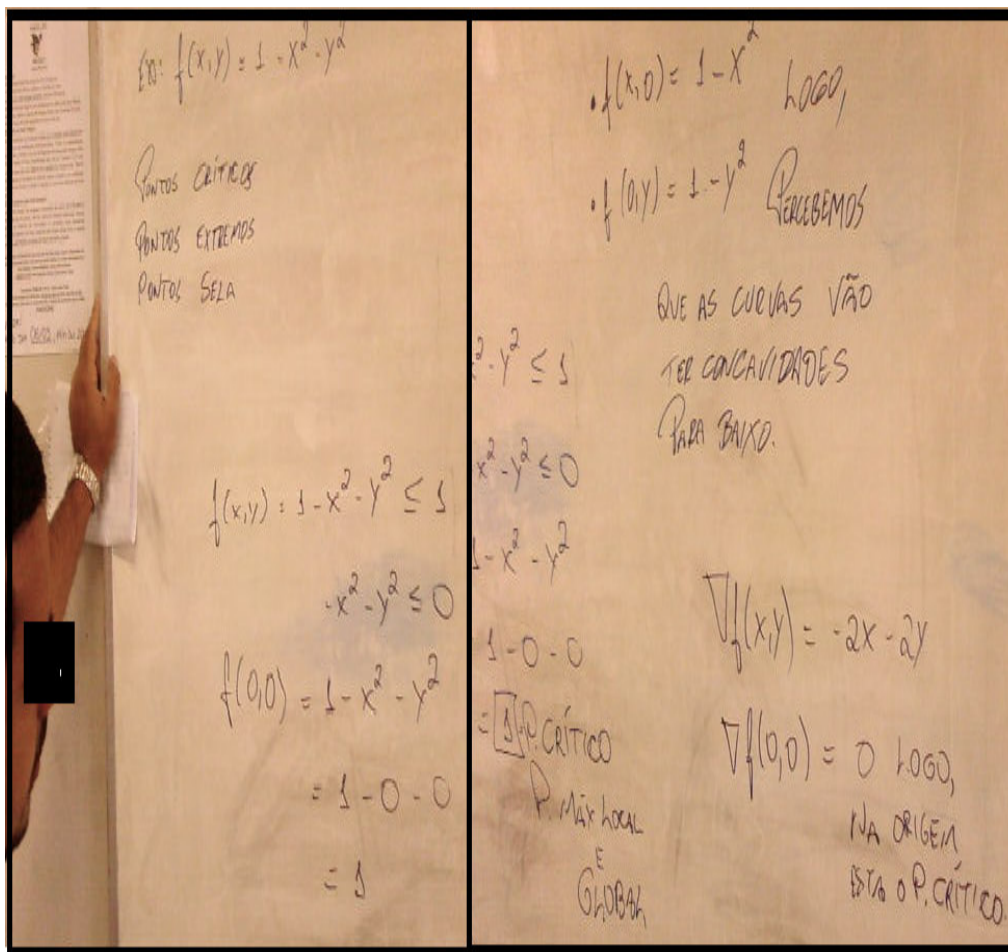 EXO: f(x,y) = 1 - x² - y²
PONTOS CRÍTICOS
PONTOS EXTREMOS
PONTOS SELA
f(x,y) = 1 - x² - y² ≤ 1
-x² - y² ≤ 0
f(0,0) = 1 - x² - y²
= 1 - 0 - 0
= 1
• f(x,0) = 1 - x² LOGO,
• f(0,y) = 1 - y² PERCEBEMOS
QUE AS CURVAS VÃO
TER CONCAVIDADES
PARA BAIXO.
² - y² ≤ 1
x² - y² ≤ 0
1 - x² - y²
1 - 0 - 0
= 1 P. CRÍTICO
P. MÁX LOCAL
E
GLOBAL
∇f(x,y) = -2x - 2y
∇f(0,0) = 0 LOGO,
NA ORIGEM
ESTÁ O P. CRÍTICO